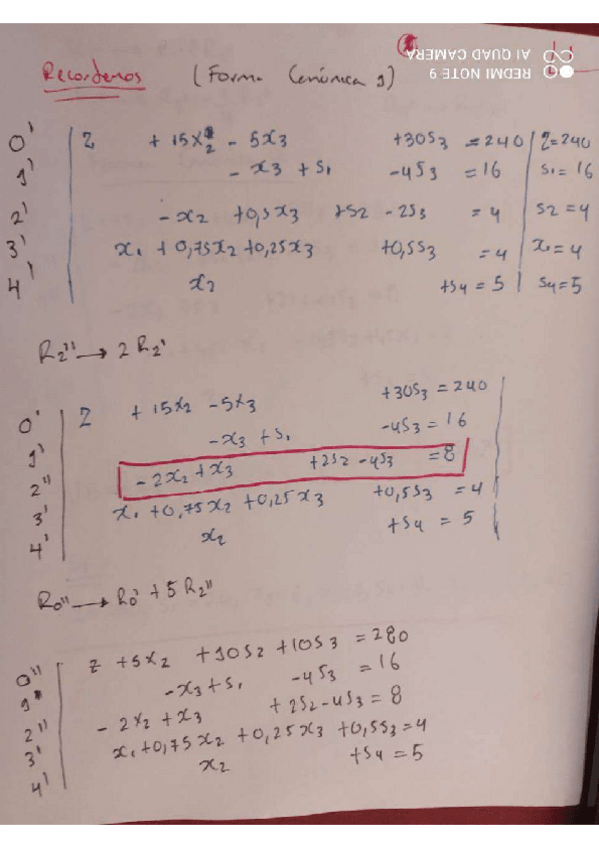 REDMI NOTE 9
AI QUAD CAMERA
Recordemos (Forma Canónica 1)
0' Z + 15X2 - 5X3 +30S3 = 240 Z=240
1' - X3 + S1 -4S3 = 16 S1 = 16
2' - X2 +0,5X3 +S2 - 2S3 = 4 S2 = 4
3' X1 + 0,75X2 +0,25X3 +0,5S3 = 4 X1 = 4
4' X2 +S4 = 5 S4 = 5
R2'' → 2 R2'
0' Z + 15X2 -5X3 +30S3 = 240
1' - X3 + S1 -4S3 = 16
2'' - 2X2 + X3 +2S2 -4S3 = 8
3' X1 +0,75X2 +0,25X3 +0,5S3 = 4
4' X2 +S4 = 5
R0'' → R0' + 5 R2''
0'' Z +5X2 +10S2 +10S3 = 280
1' - X3 + S1 -4S3 = 16
2'' - 2X2 + X3 + 2S2 -4S3 = 8
3' X1 +0,75X2 + 0,25X3 +0,5S3 = 4
4' X2 +S4 = 5